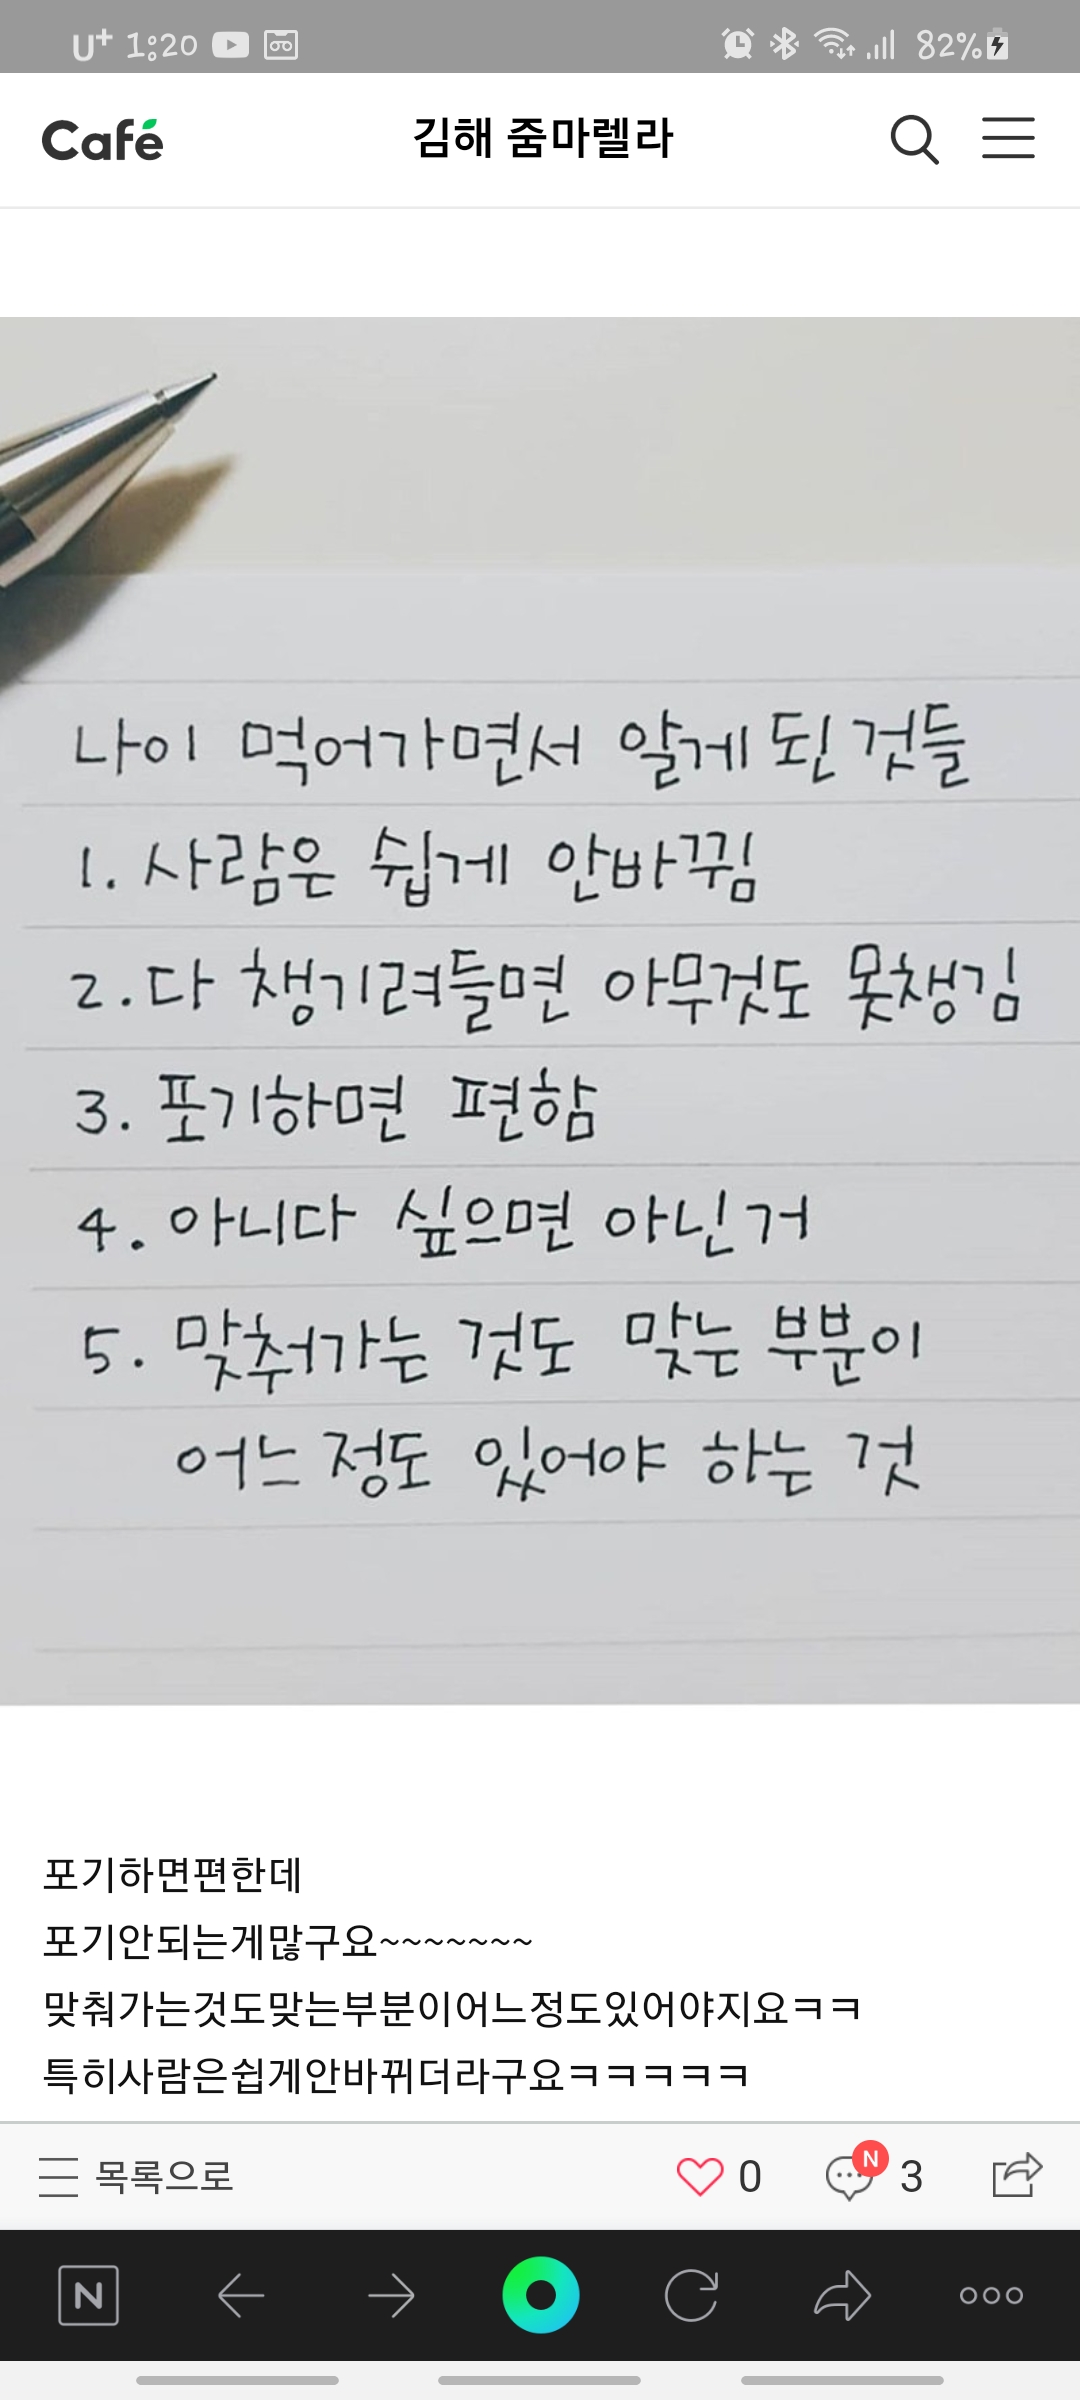 U+ 1:20 82%
Café 김해 줌마렐라
나이 먹어가면서 알게 된 것들
1. 사람은 쉽게 안바뀜
2. 다 챙기려들면 아무것도 못챙김
3. 포기하면 편함
4. 아니다 싶으면 아닌거
5. 맞춰가는 것도 맞는 부분이
어느 정도 있어야 하는 것
포기하면편한데
포기안되는게많구요~~~~~~~
맞춰가는것도맞는부분이어느정도있어야지요ㅋㅋ
특히사람은쉽게안바뀌더라구요ㅋㅋㅋㅋㅋ
목록으로 0 N 3
N